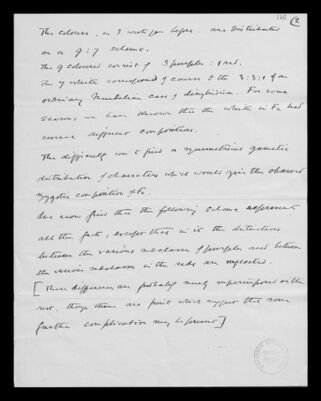 146
2
The colours, as I wrote you before, are distributed
on a 9:7 scheme.
The 9 coloured consist of 3 purples : 1 red.
The 7 whites correspond of course to the 3:3:1 of an
ordinary Mendelian case of dihybridism. For some
seasons we have known that the whites in F2 had
several different compositions.
The difficulty was to find a symmetrical gametic
distribution of characters which would give the observed
zygotic composition of F2.
We now find that the following scheme represents
all the facts, except that in it the distinctions
between the various subclasses of purples and between
the various subclasses in the reds are neglected.
[These differences are probably merely superimposed on the
rest, though there are points which suggest that some
further complication may be present]